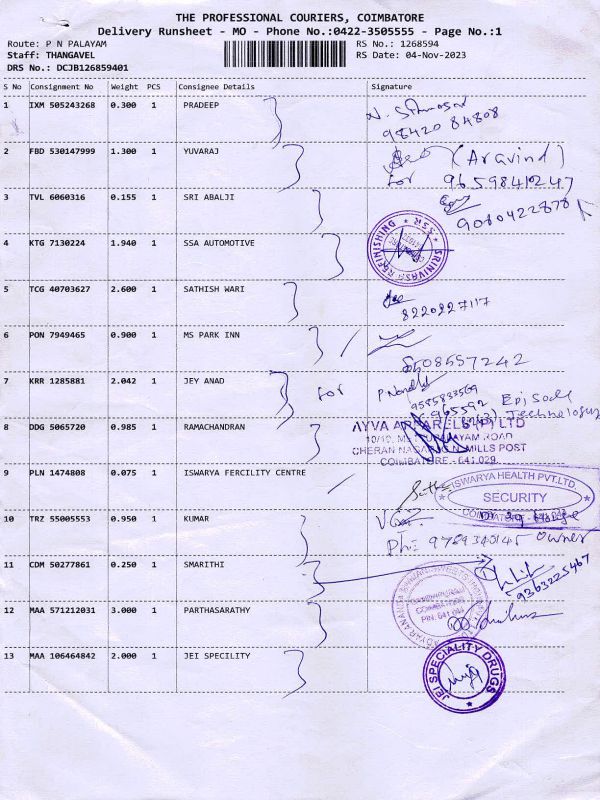 THE PROFESSIONAL COURIERS, COIMBATORE
Delivery Runsheet - MO - Phone No.:0422-3505555 - Page No.:1
Route: P N PALAYAM RS No.: 1268594
Staff: THANGAVEL RS Date: 04-Nov-2023
DRS No.: DCJB126859401
S No Consignment No Weight PCS Consignee Details Signature
1 IXM 505243268 0.300 1 PRADEEP
98420 84808
2 FBD 530147999 1.300 1 YUVARAJ (Aravind)
for 9659841247
3 TVL 6060316 0.155 1 SRI ABALJI
9080422878
4 KTG 7130224 1.940 1 SSA AUTOMOTIVE
SRINIVASA REFINISHING SSR
5 TCG 40703627 2.600 1 SATHISH WARI
8220227117
6 PON 7949465 0.900 1 MS PARK INN
8508557242
7 KRR 1285881 2.042 1 JEY ANAD for
9585833569
Episode
Technologies
8 DDG 5065720 0.985 1 RAMACHANDRAN
AYVA APPARELS (P) LTD
CHERAN NAGAR, MILLS POST
COIMBATORE - 641 029
9 PLN 1474808 0.075 1 ISWARYA FERCILITY CENTRE
ISWARYA HEALTH PVT.LTD
SECURITY
COIMBATORE
10 TRZ 55005553 0.950 1 KUMAR
Ph: owner
11 CDM 50277861 0.250 1 SMARITHI
9363225467
COIMBATORE
PIN: 641 044
12 MAA 571212031 3.000 1 PARTHASARATHY
13 MAA 106464842 2.000 1 JEI SPECILITY
JEI SPECIALITY DRUGS